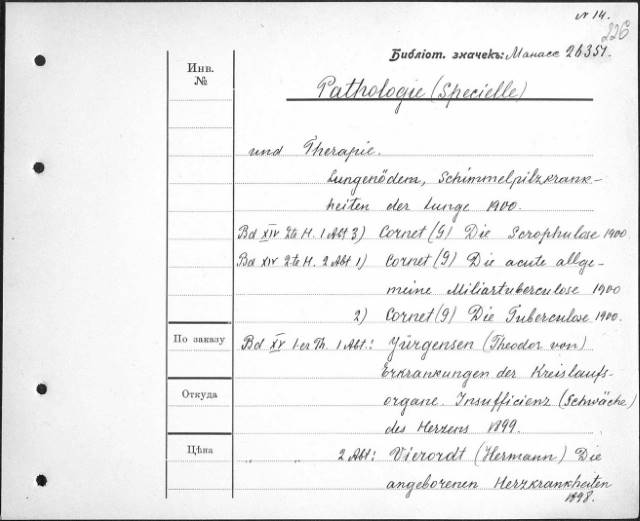 N 14.
226
Библіот. значекъ: Манасс 26351.
Инв.
№
Pathologie (Specielle)
und Therapie.
Lungenödem, Schimmelpilzkrank-
heiten der Lunge 1900.
Bd XIV 2te H. 1 Abt 3) Cornet (G) Die Scrophulose 1900
Bd XIV 2te H. 2 Abt 1) Cornet (G) Die acute allge-
meine Miliartuberculose 1900
2) Cornet (G) Die Tuberculose 1900.
По заказу
Bd XV 1-er Th. 1 Abt.: Jürgensen (Theodor von)
Erkrankungen der Kreislaufs-
Откуда
organe. Insufficienz (Schwäche)
des Herzens 1899.
Цѣна
„ „ 2 Abt: Vierordt (Hermann) Die
angeborenen Herzkrankheiten
1898.